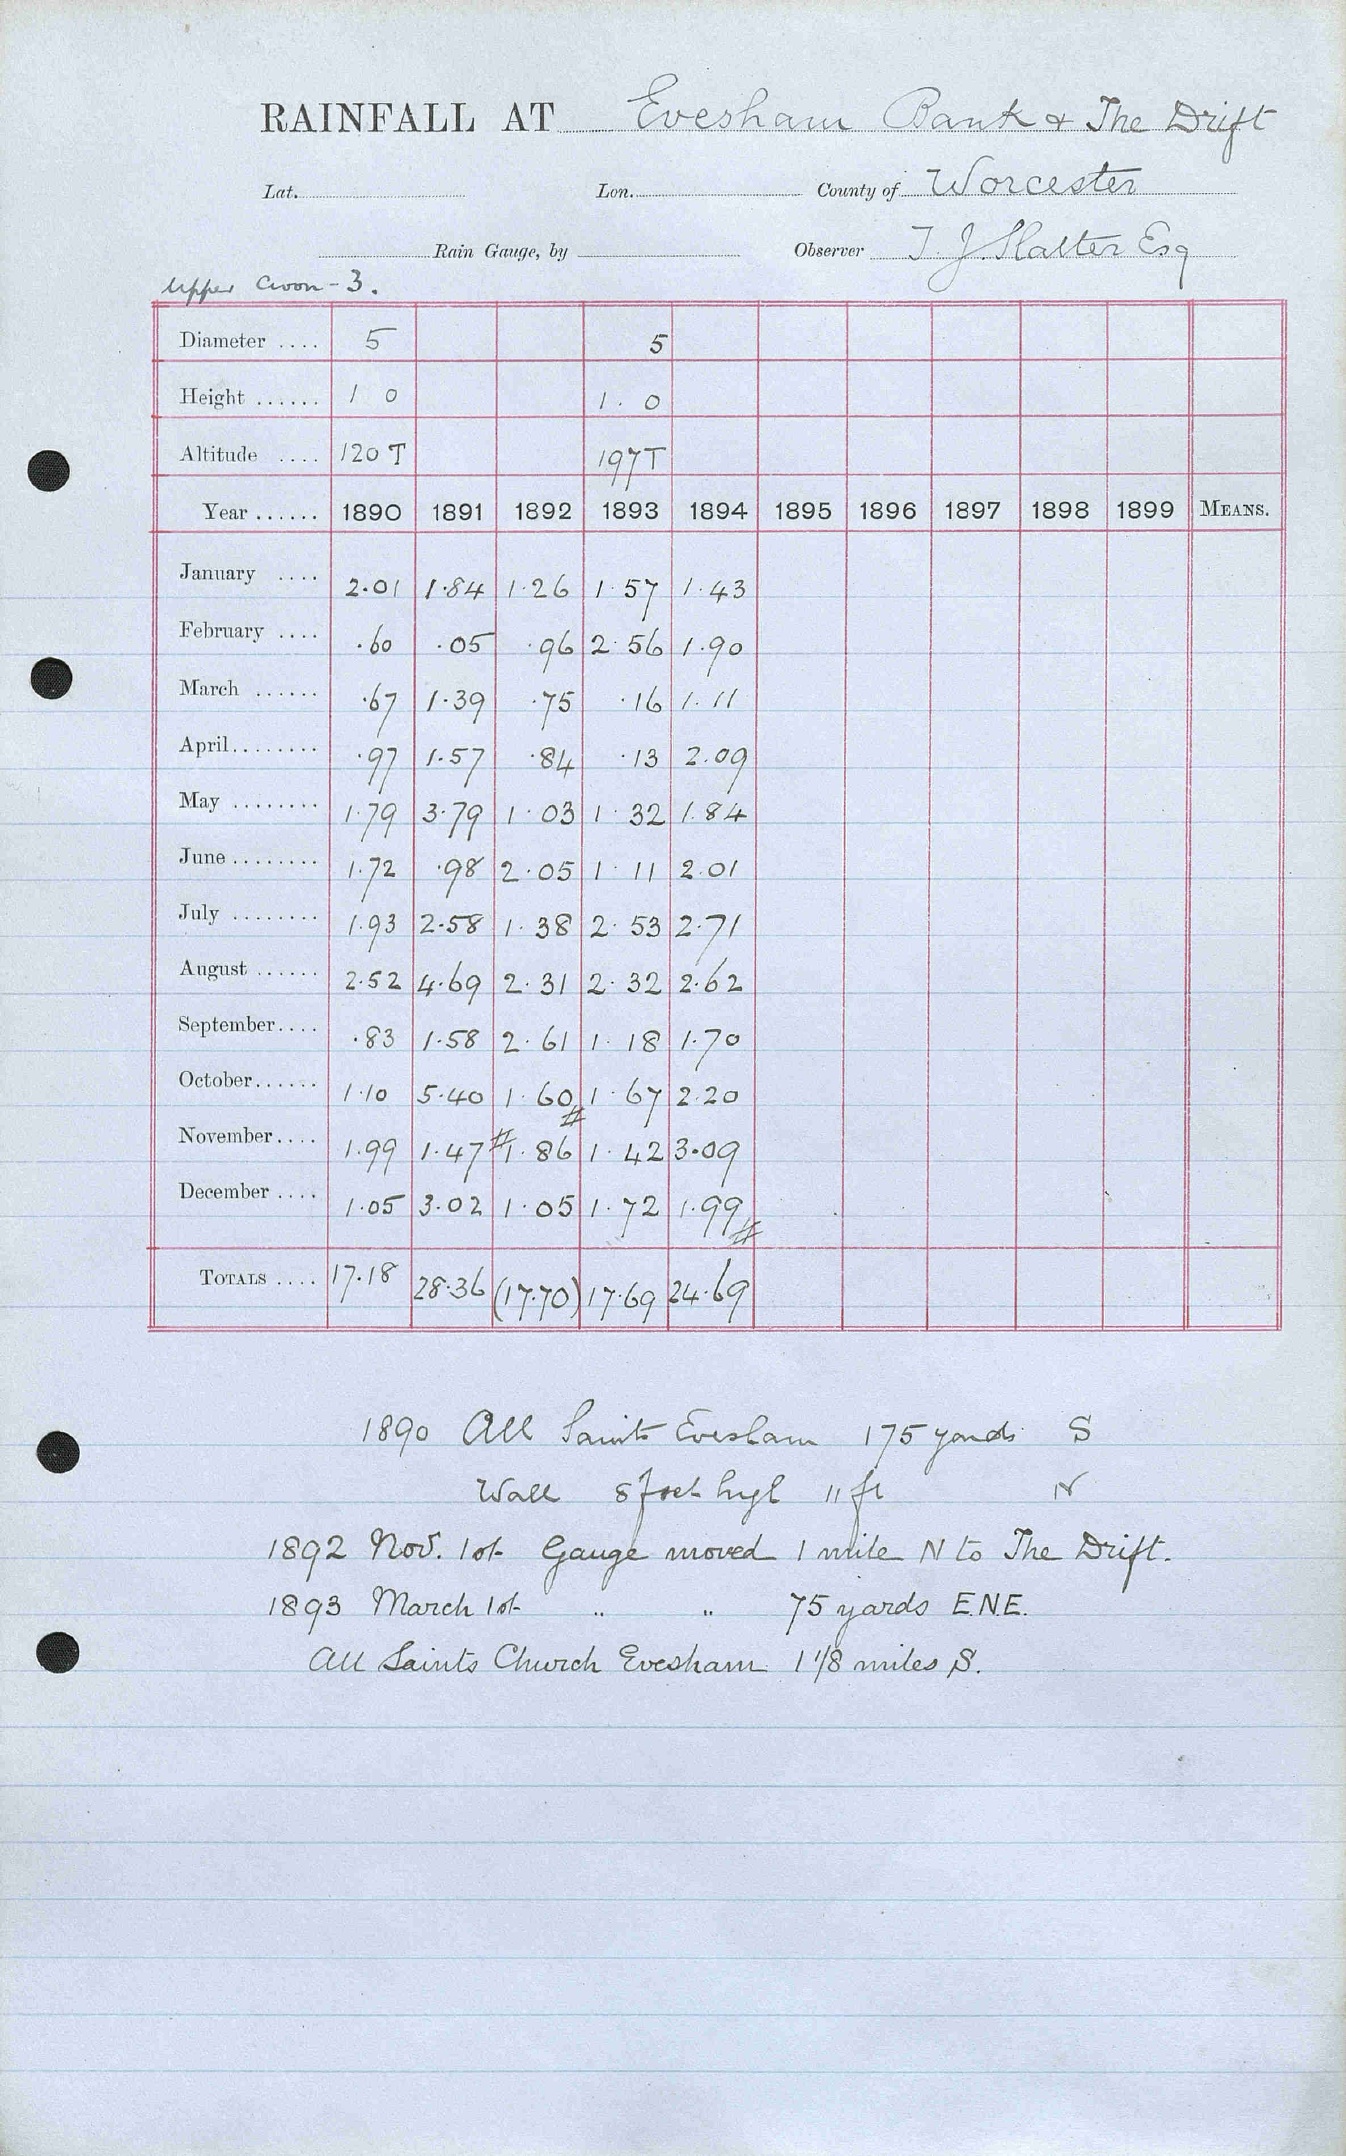 RAINFALL AT Evesham Bank & The Drift
Lat. Lon. County of Worcester
Rain Gauge, by Observer T. J. Slatter Esq
Upper Avon - 3.
Diameter .... 5 5
Height ...... 1 0 1. 0
Altitude .... 120 T 197 T
Year ...... 1890 1891 1892 1893 1894 1895 1896 1897 1898 1899 MEANS.
January .... 2.01 1.84 1.26 1.57 1.43
February .... .60 .05 .96 2.56 1.90
March ...... .67 1.39 .75 .16 1.11
April........ .97 1.57 .84 .13 2.09
May ........ 1.79 3.79 1.03 1.32 1.84
June ........ 1.72 .98 2.05 1.11 2.01
July ........ 1.93 2.58 1.38 2.53 2.71
August ...... 2.52 4.69 2.31 2.32 2.62
September.... .83 1.58 2.61 1.18 1.70
October...... 1.10 5.40 1.60 # 1.67 2.20
November.... 1.99 1.47 # 1.86 1.42 3.09
December .... 1.05 3.02 1.05 1.72 1.99 #
TOTALS .... 17.18 28.36 (17.70) 17.69 24.69
1890 All Saints Evesham 175 yards S
Wall 8 feet high 11 ft N
1892 Nov. 1st Gauge moved 1 mile N to The Drift.
1893 March 1st " " 75 yards E.N.E.
All Saints Church Evesham 1 1/8 miles S.